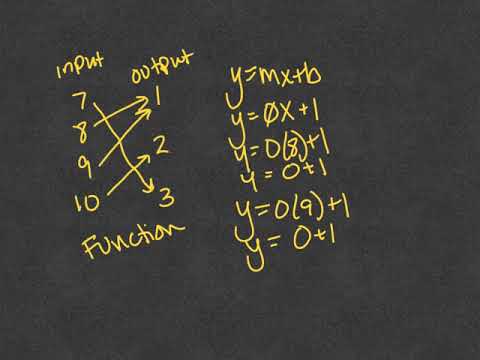 input output
7 1
8
9 2
10 3
Function
y=mx+b
y=0x+1
y=0(8)+1
y=0+1
y=0(9)+1
y=0+1